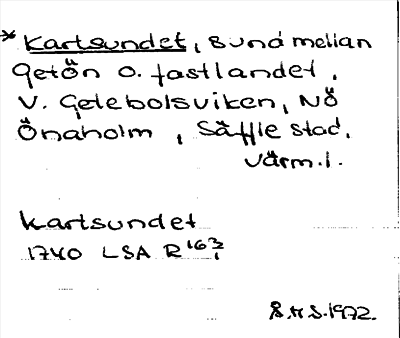 * Kartsundet, sund mellan
Getön o. fastlandet,
V. Getebolsviken, NÖ
Önaholm, Säffle stad,
Värm. l.
Kartsundet
1740 LSA R 16 3/1
S.H.S. 1972.